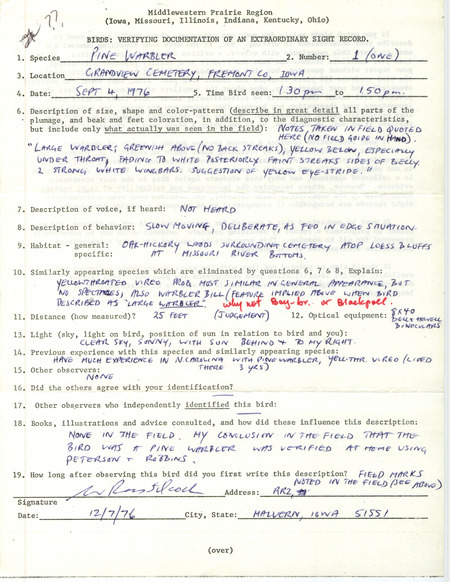 ??
Middlewestern Prairie Region
(Iowa, Missouri, Illinois, Indiana, Kentucky, Ohio)
BIRDS: VERIFYING DOCUMENTATION OF AN EXTRAORDINARY SIGHT RECORD.
1. Species PINE WARBLER 2. Number: 1 (ONE)
3. Location GRANDVIEW CEMETERY, FREMONT CO, IOWA
4. Date: SEPT 4, 1976 5. Time Bird seen: 1:30 pm to 1:50 pm.
6. Description of size, shape and color-pattern (describe in great detail all parts of the
plumage, and beak and feet coloration, in addition, to the diagnostic characteristics,
but include only what actually was seen in the field): NOTES, TAKEN IN FIELD QUOTED
HERE (NO FIELD GUIDE IN HAND).
"LARGE WARBLER; GREENISH ABOVE (NO BACK STREAKS), YELLOW BELOW, ESPECIALLY
UNDER THROAT, FADING TO WHITE POSTERIORLY. FAINT STREAKS SIDES OF BELLY.
2 STRONG WHITE WINGBARS. SUGGESTION OF YELLOW EYE-STRIPE."
7. Description of voice, if heard: NOT HEARD
8. Description of behavior: SLOW MOVING, DELIBERATE, AS FED IN EDGE SITUATION.
9. Habitat - general: OAK-HICKORY WOODS SURROUNDING CEMETERY ATOP LOESS BLUFFS
specific: AT MISSOURI RIVER BOTTOMS.
10. Similarly appearing species which are eliminated by questions 6, 7 & 8, Explain:
YELLOWTHROATED VIREO PROB. MOST SIMILAR IN GENERAL APPEARANCE, BUT
NO SPECTACLES, ALSO WARBLER BILL (FEATURE IMPLIED ABOVE WHEN BIRD
DESCRIBED AS "LARGE WARBLER" why not Bay-br. or Blackpoll.
11. Distance (how measured)? 25 FEET (JUDGEMENT) 12. Optical equipment: 8X40
BELL & HOWELL
BINOCULARS
13. Light (sky, light on bird, position of sun in relation to bird and you):
CLEAR SKY, SUNNY, WITH SUN BEHIND & TO MY RIGHT.
14. Previous experience with this species and similarly appearing species:
HAVE MUCH EXPERIENCE IN N. CAROLINA WITH PINE WARBLER, YELL-THR. VIREO (LIVED
THERE 3 YRS)
15. Other observers:
NONE
16. Did the others agree with your identification?
17. Other observers who independently identified this bird:
18. Books, illustrations and advice consulted, and how did these influence this description:
NONE IN THE FIELD. MY CONCLUSION IN THE FIELD THAT THE
BIRD WAS A PINE WARBLER WAS VERIFIED AT HOME USING
PETERSON & ROBBINS.
19. How long after observing this bird did you first write this description? FIELD MARKS
NOTED IN THE FIELD (SEE ABOVE)
Signature Address: RR2,
Date: 12/7/76 City, State: MALVERN, IOWA 51551
(over)